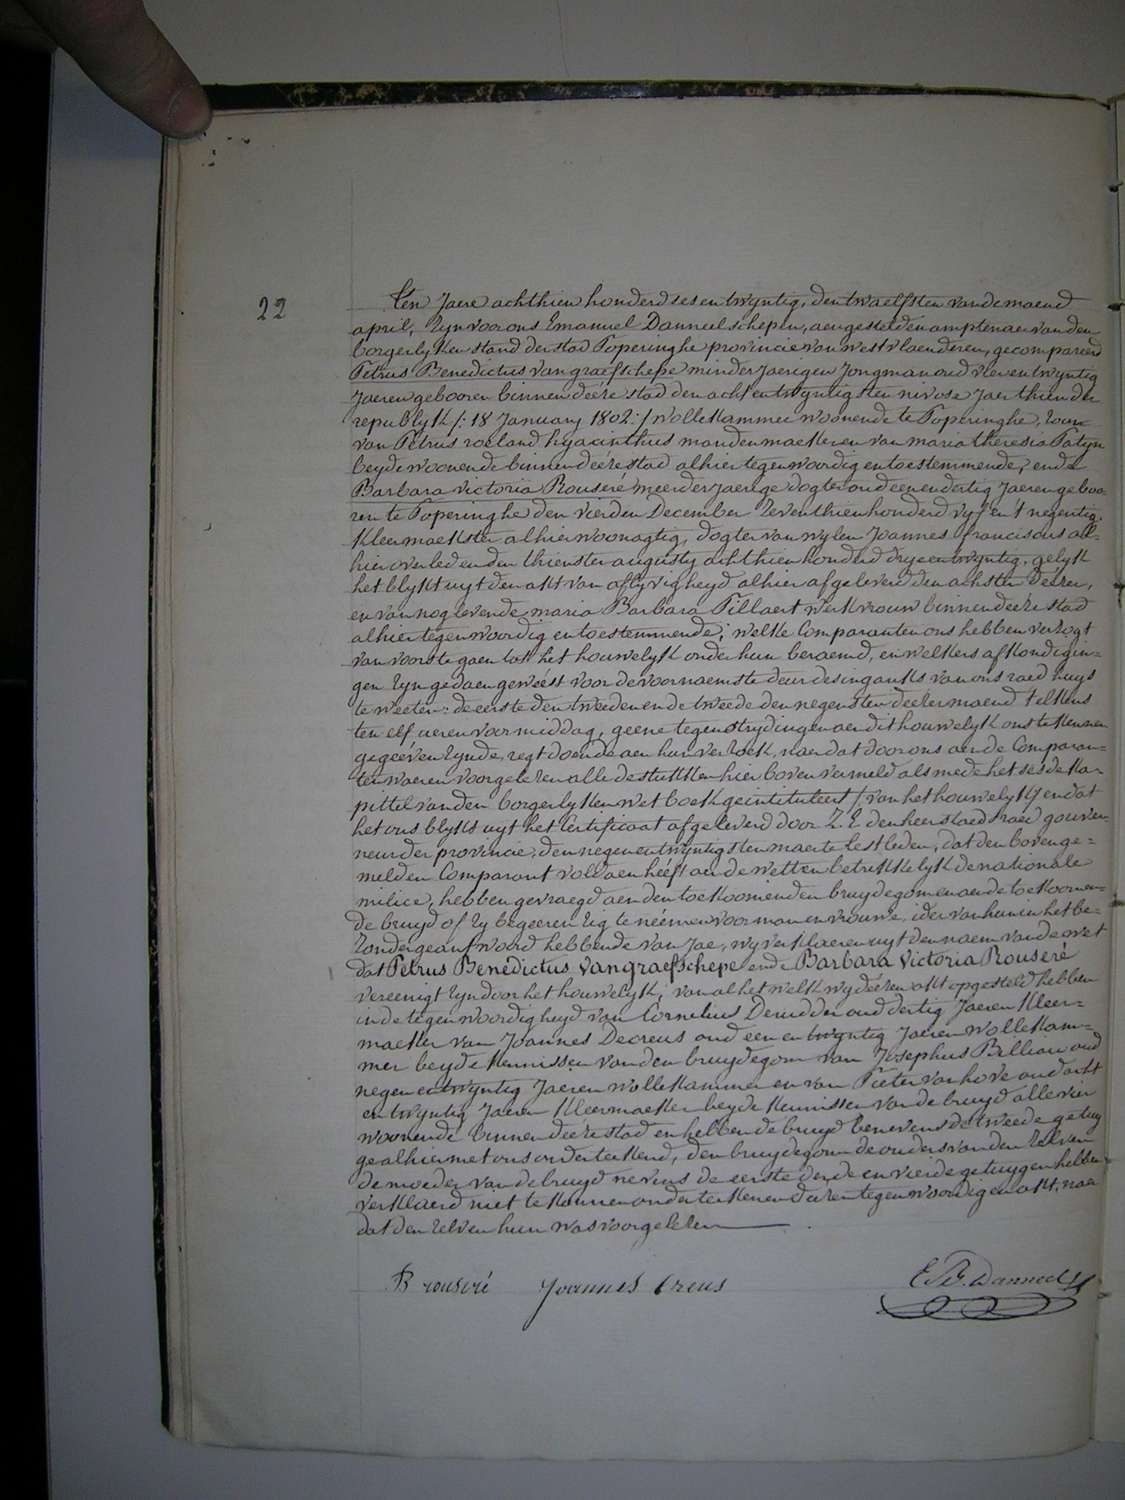 22
Ten Jaere achthien honderd sesentwyntig, den twaelfsten van de maend
april, zyn voor ons Emanuel Danneel schepen, aengestelden amptenaer van den
borgerlyken stand der stad Poperinghe provincie van westvlaenderen, gecompareerd
Petrus Benedictus vangraefschepe minderjaerigen Jongman oud vierentwyntig
Jaeren gebooren binnen deéze stad den achtentwyntigsten nivose Jaer thien der
republyk /: 18 January 1802 :/ wollekammer woonende te Poperinghe, zoon
van Petrus roeland hyacinthus mandenmaeker en van maria theresia Patyn
beyde woonende binnen deéze stad alhier tegenwoordig en toestemmende, ende
Barbara victoria Rouseré meerderjaerige dogter oud eenendertig Jaeren geboo-
ren te Poperinghe den vierden December zeventhien honderd vyf en 't negentig,
kleermaekster alhier woonagtig, dogter van wylen Joannes franciscus al-
hier overleden den thiensten augusty achthien honderd dryentwyntig, gelyk
het blykt uyt den akt van aflyvigheyd alhier afgeleverd den achsten deézer,
en van nog levende maria Barbara Tillaert werkvrouw binnen deéze stad
alhier tegenwoordig en toestemmende; welke Comparanten ons hebben verzogt
van voorts te gaen tot het houwelyk onder hun beraemd, en welkers afkondigin-
gen zyn gedaen geweést voor de voornaemste deur des ingankx van ons raedhuys
te weeten: de eerste den tweeden en de tweede den negensten deézer maend telkens
ten elf ueren voormiddag, geene tegenstrydingen aen dit houwelyk ons te kennen
gegeéven zynde, regt doende aen hun verzoek, naer dat door ons aen de Comparan-
ten waeren voorgelezen alle de stukken hier boven vermeld als mede het sesde Ka-
pittel van den borgerlyken wetboek geintituleert / van het houwelyk / en dat
het ons blykt uyt het Certificaat afgeleverd door Z. E. den heer staedsraed gouver-
neur der provincie, den negenentwyntigsten maerte lestleden, dat den bovenge-
melden Comparant voldaen heéft aen de wetten betrekkelyk de nationale
milice, hebben gevraegd aen den toekoomenden bruydegom en aen de toekoomen-
de bruyd of zy begeeren zig te neémen voor man en vrouwe, ider van hun in het be-
zonder geantwoord hebbende van Jae, wy verklaeren uyt den naem van de wet
dat Petrus Benedictus vangraefschepe ende Barbara Victoria Rouseré
vereenigt zyn door het houwelyk; van al het welk wy deézen akt opgesteld hebben
in de tegenwoordigheyd van Cornelius Deridder oud dertig Jaeren kleer-
maeker van Joannes Decreus oud een en twyntig Jaeren wollekam-
mer beyde kennissen van den bruydegom van Josephus Billiau oud
negenentwyntig Jaeren wollekammer en van Pieter vanhove oud acht
entwyntig Jaeren kleermaeker beyde kennissen van de bruyd alle vier
woonende binnen deéze stad en hebben de bruyd benevens de tweede getuy
ge alhier met ons onderteekend, den bruydegom de ouders van den zelven
de moeder van de bruyd nevens de eerste derde en vierde getuygen hebben
verklaerd niet te konnen onderteekenen deézen tegenwoordigen akt, naer
dat den zelven hun was voorgelezen
B rouseré Joannes Creus E. B. Danneel